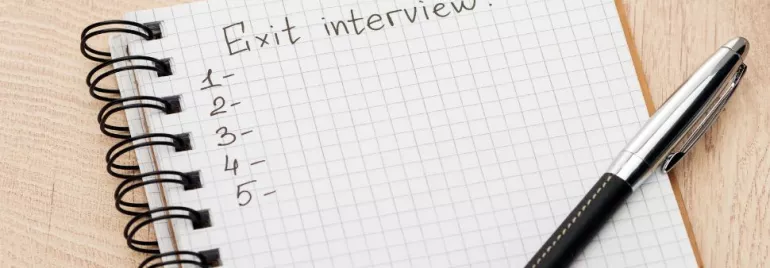 Exit interview:
1-
2-
3-
4-
5-